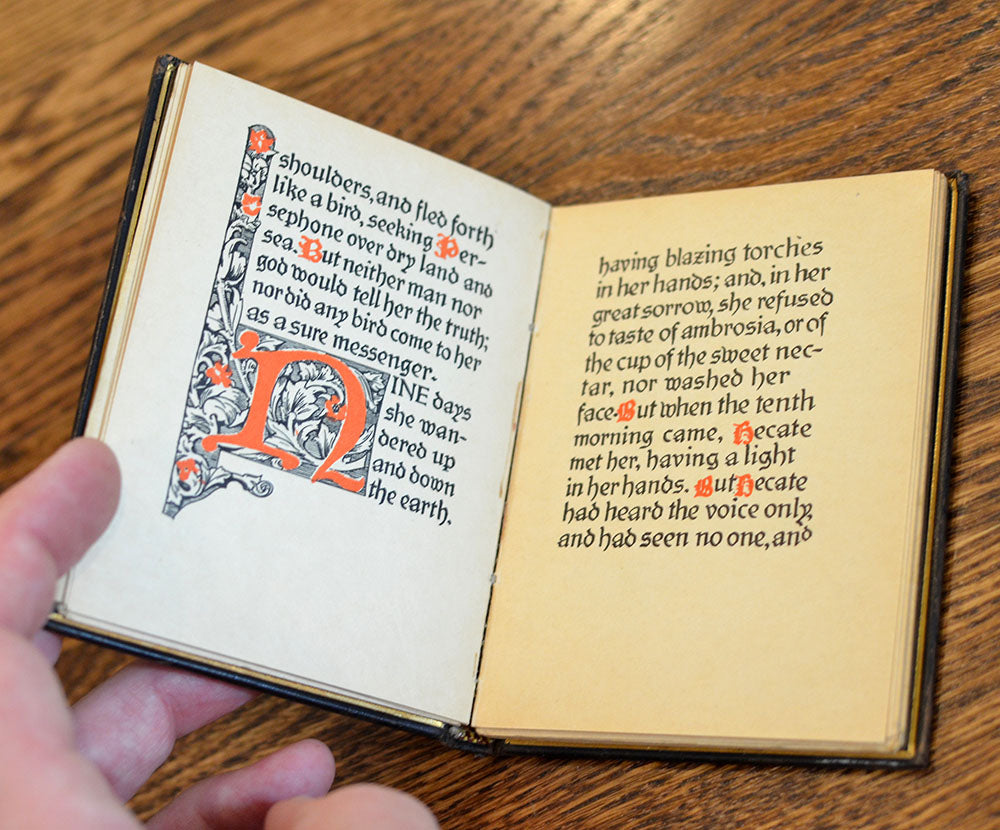 shoulders, and fled forth
like a bird, seeking Per-
sephone over dry land and
sea. But neither man nor
god would tell her the truth;
nor did any bird come to her
as a sure messenger.
NINE days
she wan-
dered up
and down
the earth,
having blazing torches
in her hands; and, in her
great sorrow, she refused
to taste of ambrosia, or of
the cup of the sweet nec-
tar, nor washed her
face. But when the tenth
morning came, Hecate
met her, having a light
in her hands. But Hecate
had heard the voice only,
and had seen no one, and